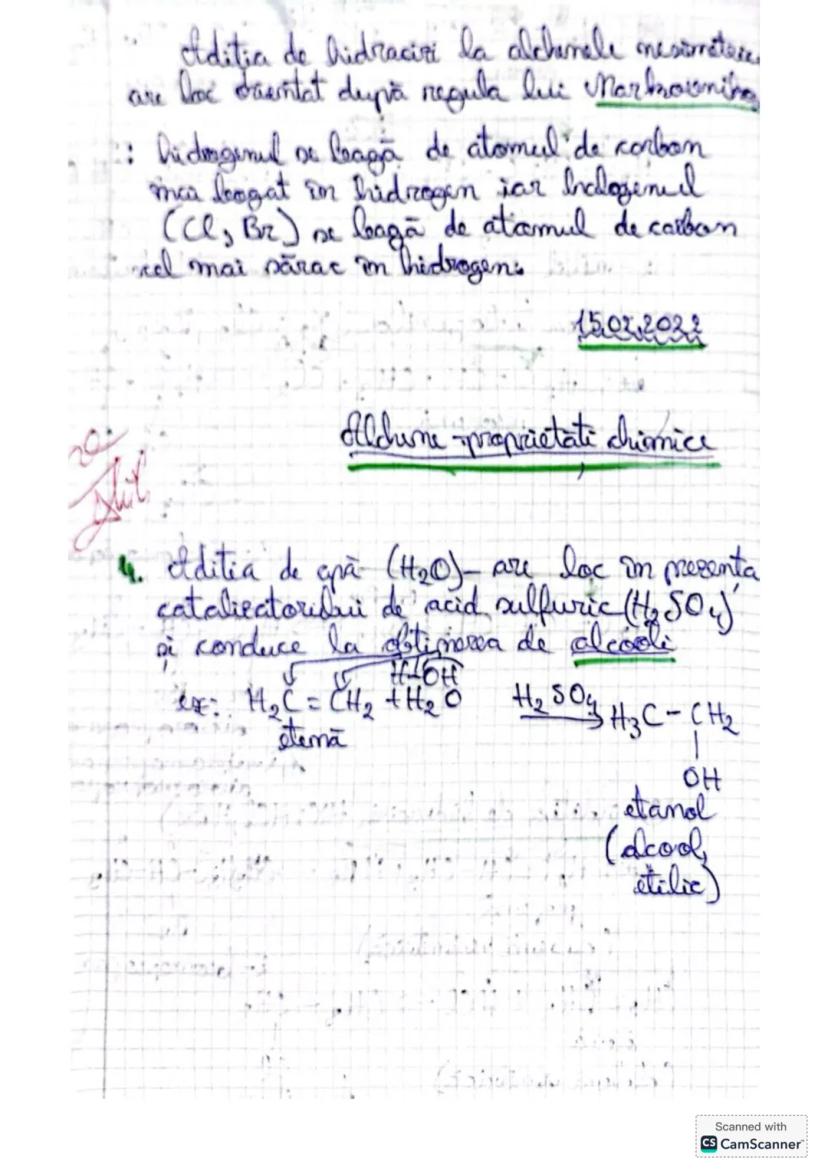 Aditia de hidracizi la alchenele nesimetrice
are loc orientat după regula lui Markovnikov
: hidrogenul se leagă de atomul de carbon
mai bogat în hidrogen iar halogenul
(Cl, Br) se leagă de atomul de carbon
cel mai sărac în hidrogen.
15.02.2022
Alchene - proprietăti chimice
4. Aditia de apă (H₂O) - are loc în prezenta
catalizatorului de acid sulfuric (H₂SO₄)
și conduce la obtinerea de alcooli
H-OH
ex: H₂C = CH₂ + H₂O H₂SO₄ → H₃C - CH₂
etenă
|
OH
etanol
(alcool
etilic)
Scanned with
CS CamScanner